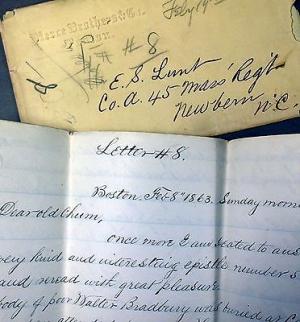 Pierce Brothers & Co.
Boston.
Feby 19th
# 8
E. S. Lunt
Co. A. 45 Mass' Regt
Newbern N.C.
Letter # 8.
Boston Feb 8th 1863. Sunday morn
Dear old Chum,
Once more I am seated to ans
very kind and interesting epistle number 5
and reread with great pleasure
body of poor Walter Bradbury was buried at C